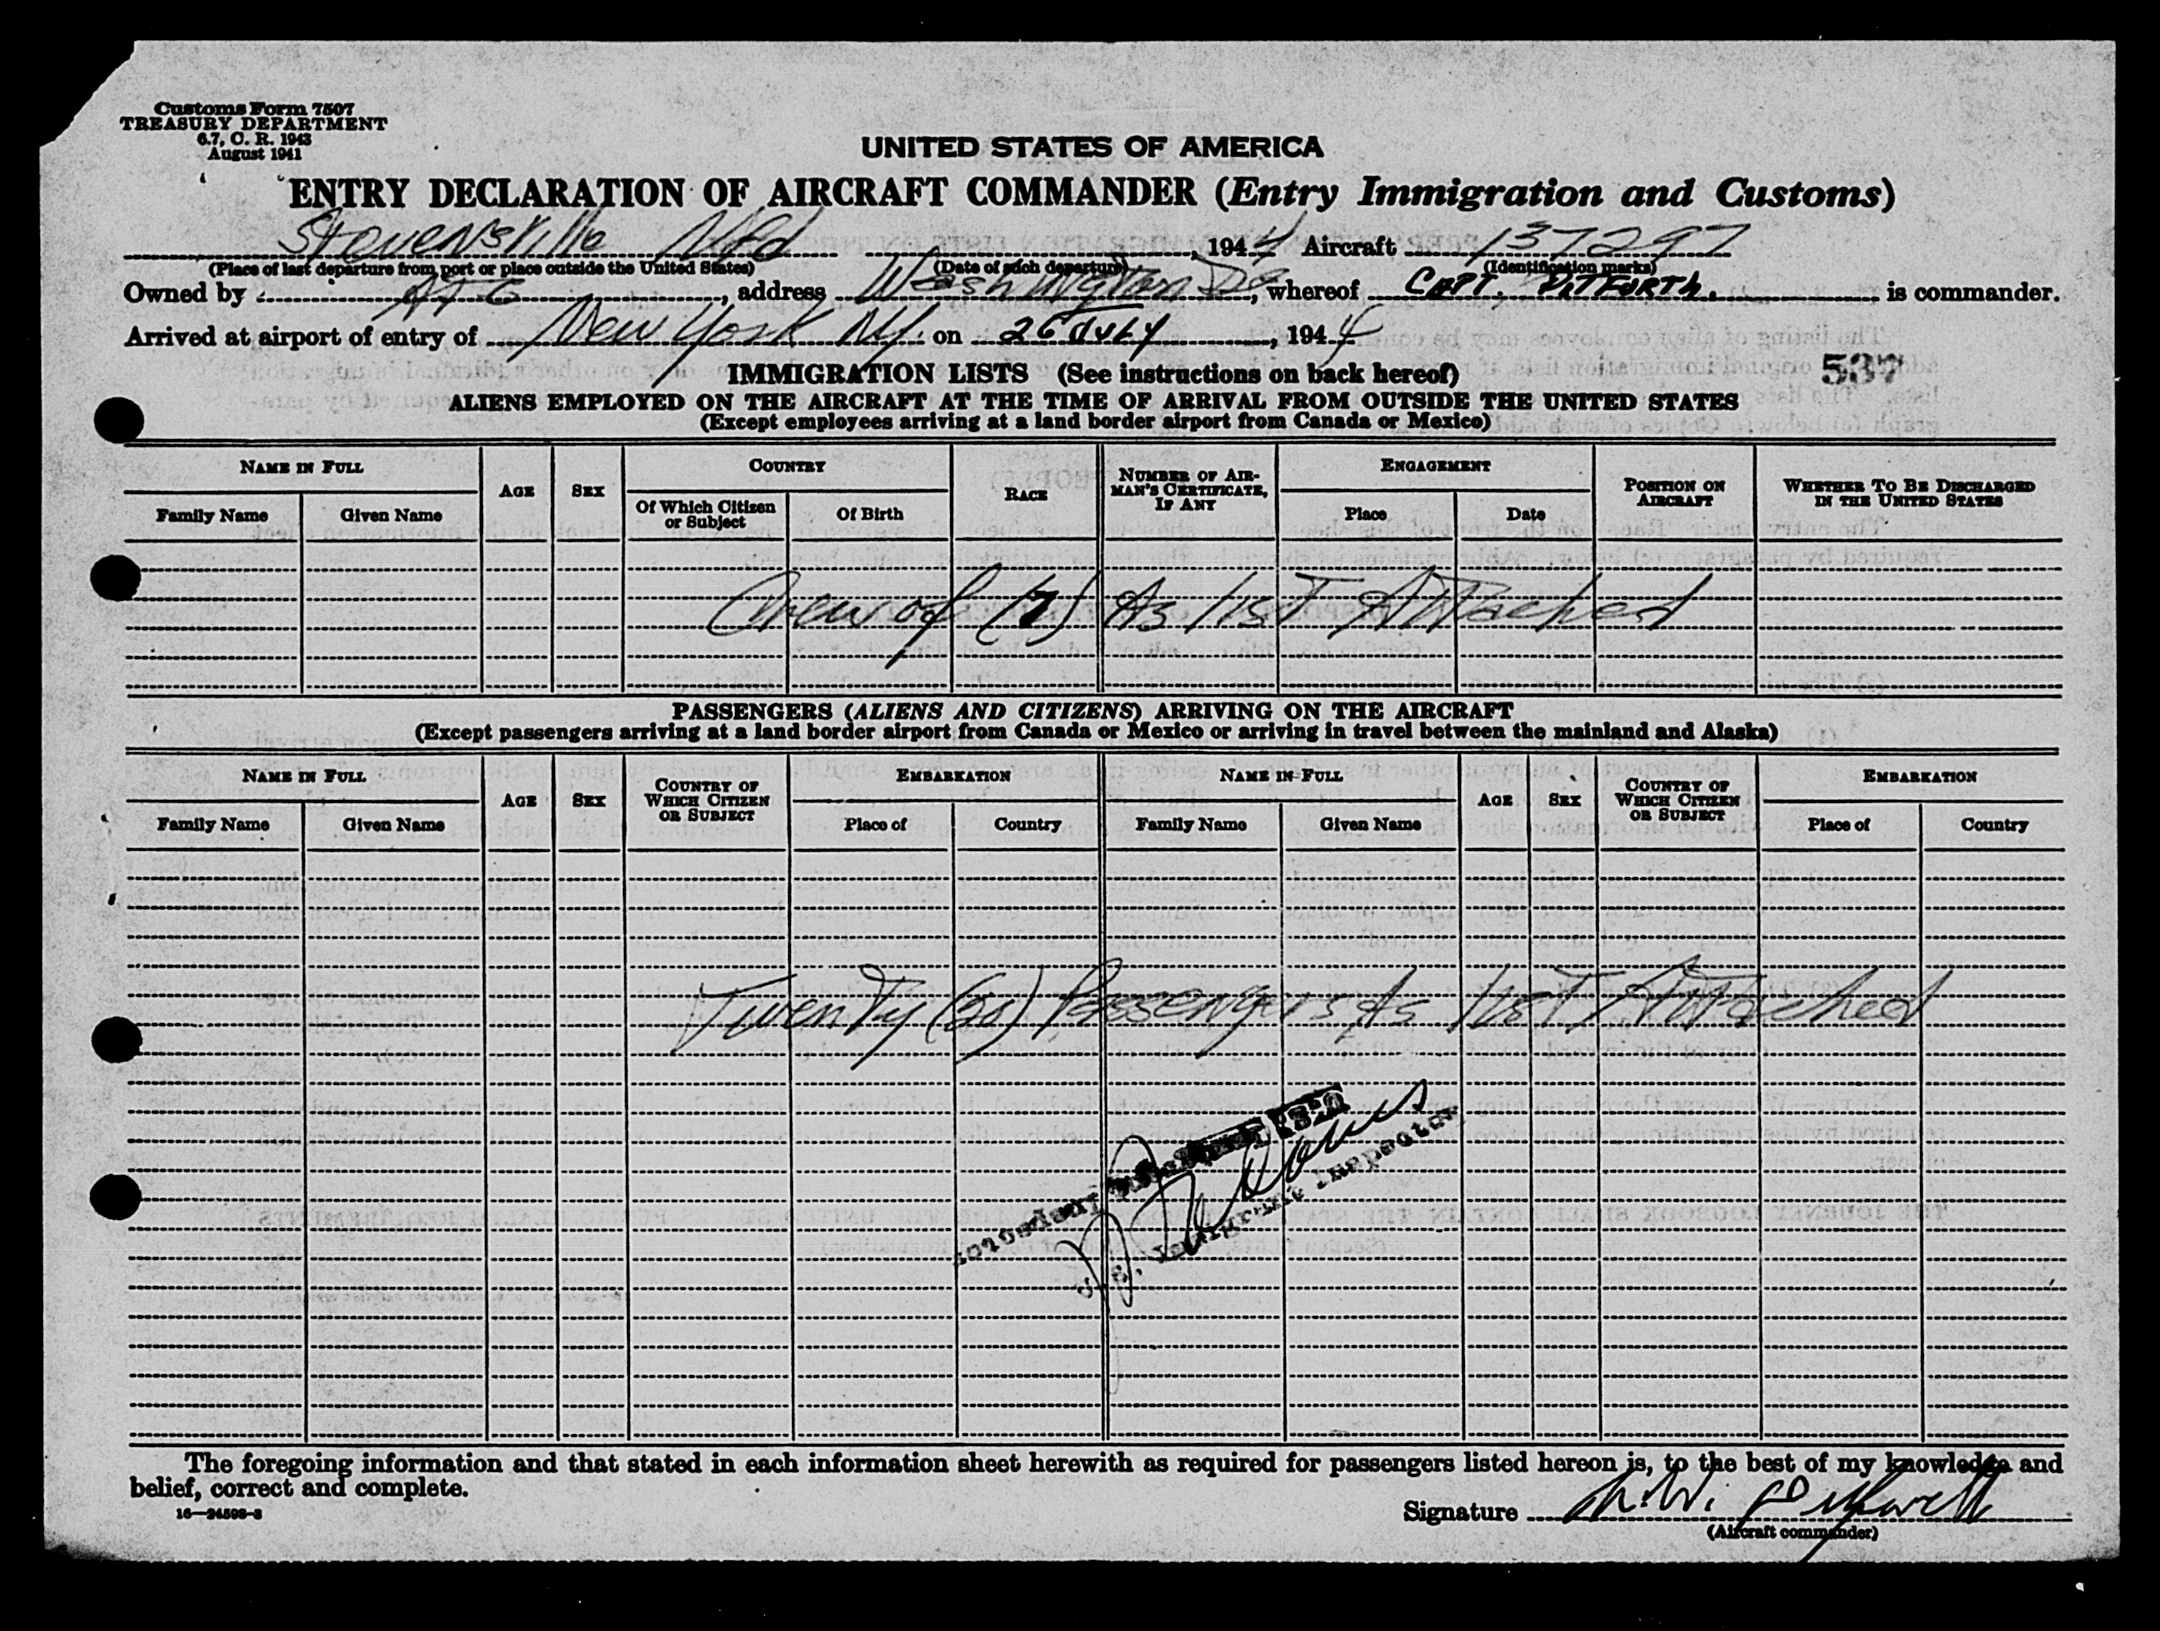 Customs Form 7507
TREASURY DEPARTMENT
6.7, C. R. 1943
August 1941
UNITED STATES OF AMERICA
ENTRY DECLARATION OF AIRCRAFT COMMANDER (Entry Immigration and Customs)
Stevensville Nfld , 1944 Aircraft 137297
(Place of last departure from port or place outside the United States) (Date of such departure) (Identification marks)
Owned by ATC , address Washington DC , whereof CAPT. is commander.
Arrived at airport of entry of New York NY. on 26 JULY , 1944
IMMIGRATION LISTS (See instructions on back hereof)
537
ALIENS EMPLOYED ON THE AIRCRAFT AT THE TIME OF ARRIVAL FROM OUTSIDE THE UNITED STATES
(Except employees arriving at a land border airport from Canada or Mexico)
NAME IN FULL AGE SEX COUNTRY RACE NUMBER OF AIRMAN'S CERTIFICATE, IF ANY ENGAGEMENT POSITION ON AIRCRAFT WHETHER TO BE DISCHARGED IN THE UNITED STATES
Family Name Given Name Of Which Citizen or Subject Of Birth Place Date
Crew of (7) As list Attached
PASSENGERS (ALIENS AND CITIZENS) ARRIVING ON THE AIRCRAFT
(Except passengers arriving at a land border airport from Canada or Mexico or arriving in travel between the mainland and Alaska)
NAME IN FULL AGE SEX COUNTRY OF WHICH CITIZEN OR SUBJECT EMBARKATION NAME IN FULL AGE SEX COUNTRY OF WHICH CITIZEN OR SUBJECT EMBARKATION
Family Name Given Name Place of Country Family Name Given Name Place of Country
Twenty (20) Passengers As list Attached
U.S. Immigrant Inspector
The foregoing information and that stated in each information sheet herewith as required for passengers listed hereon is, to the best of my knowledge and
belief, correct and complete.
16—24598-2
Signature
(Aircraft commander)